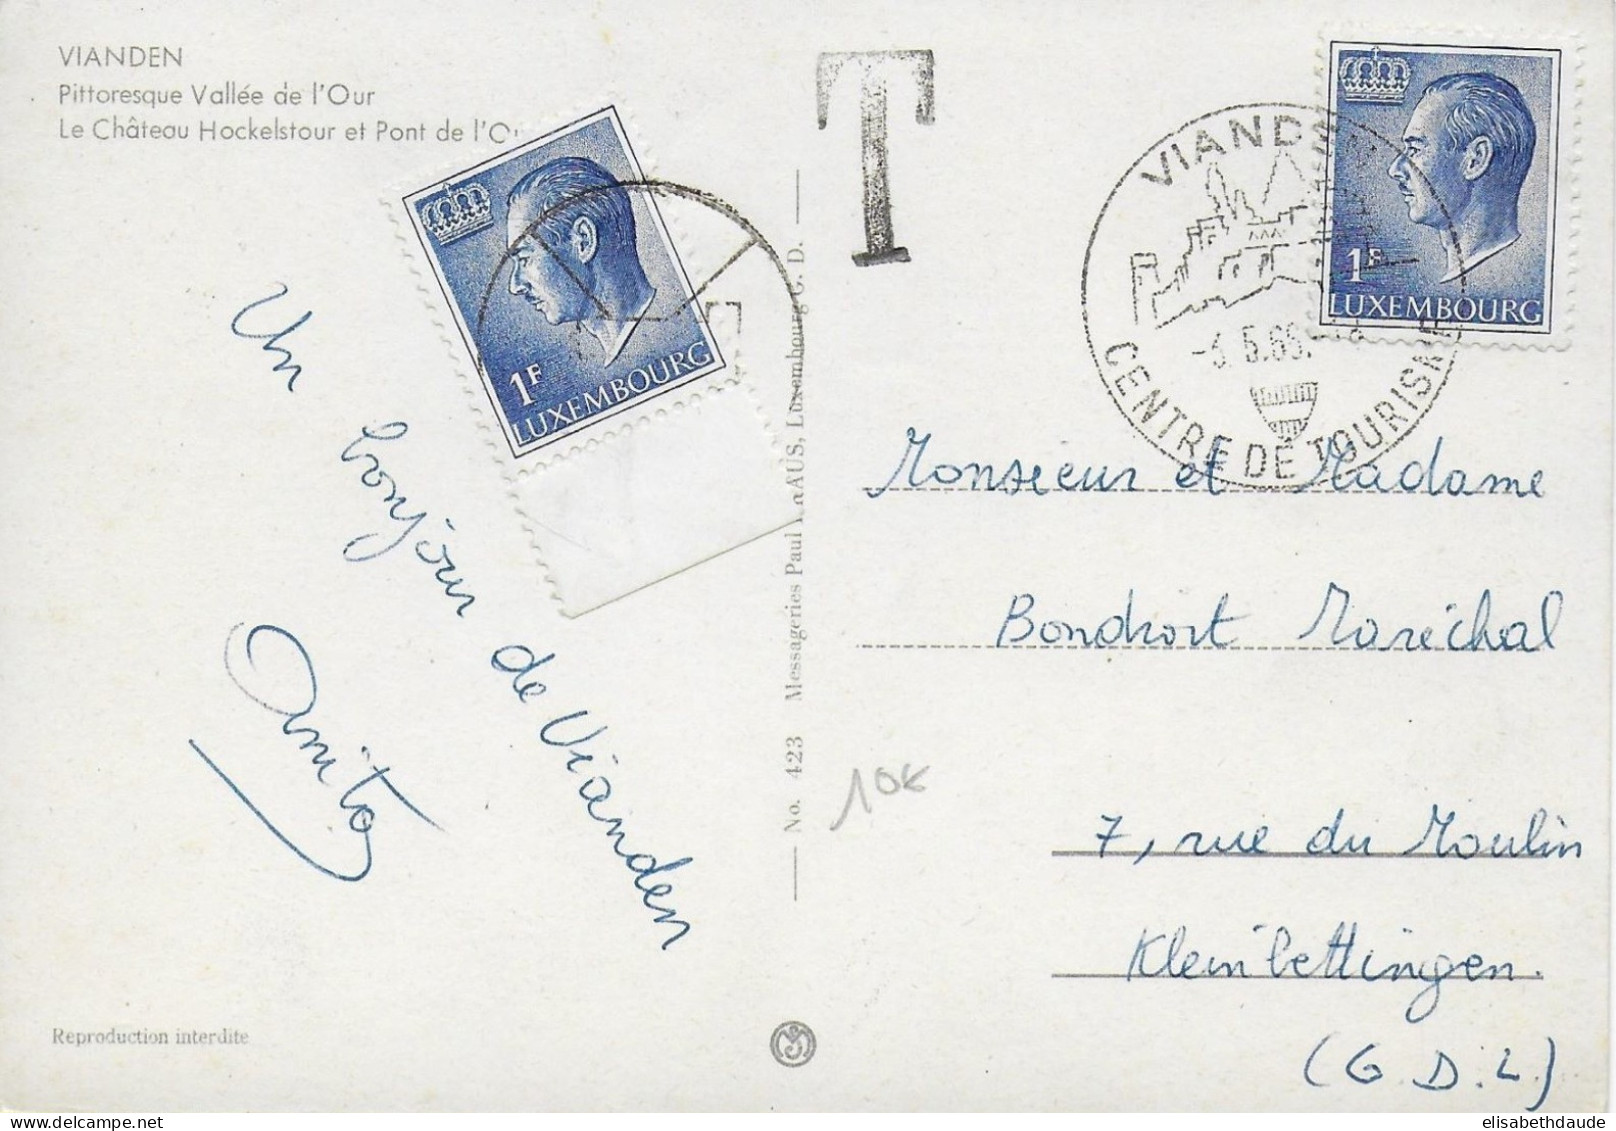 VIANDEN
Pittoresque Vallée de l'Our
Le Château Hockelstour et Pont de l'O
T
1F
LUXEMBOURG
1F
LUXEMBOURG
VIANDEN
CENTRE DE TOURISME
Un
bonjour de Vianden
Anita
No. 423 Messageries Paul AUS, Luxembourg G. D.
Monsieur et Madame
Bondrort Maréchal
7, rue du Moulin
Kleinbettingen.
(G. D. L.)
10€
Reproduction interdite
elisabethdaude